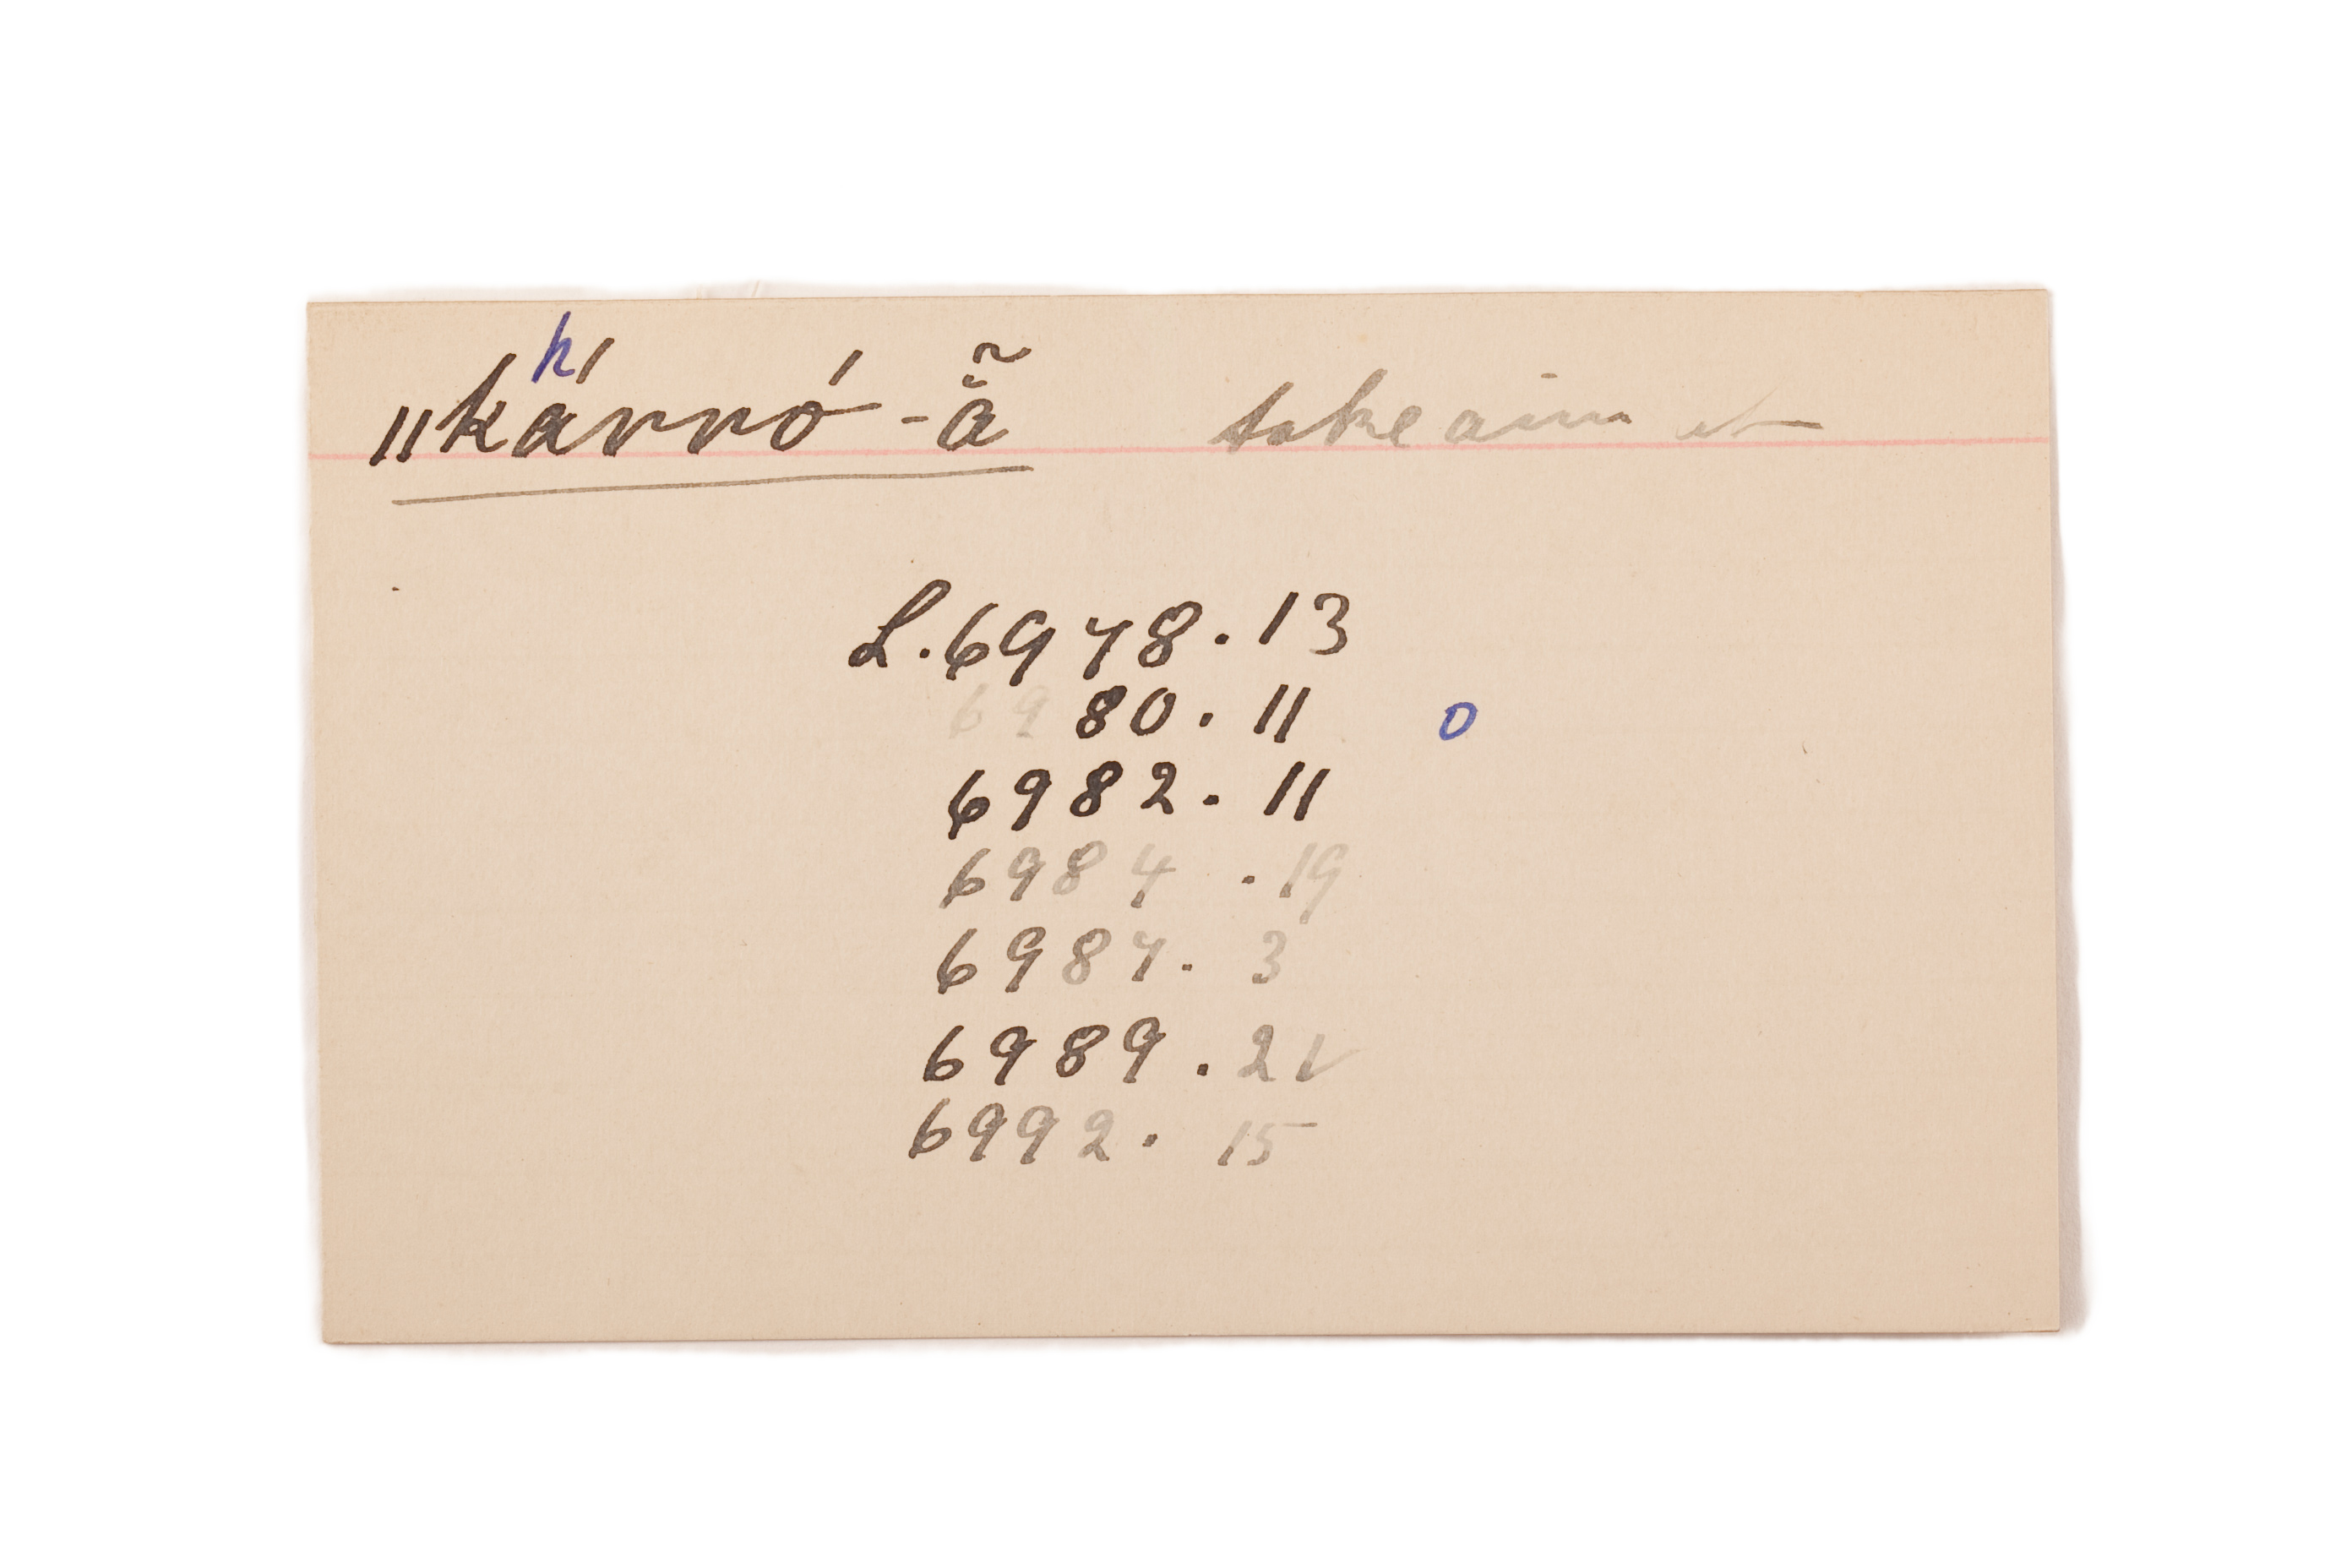 h
ǁkárró-ã̆ take aim at
L.6978.13
6980.11 0
6982.11
6984.19
6987.3
6989.21
6992.15